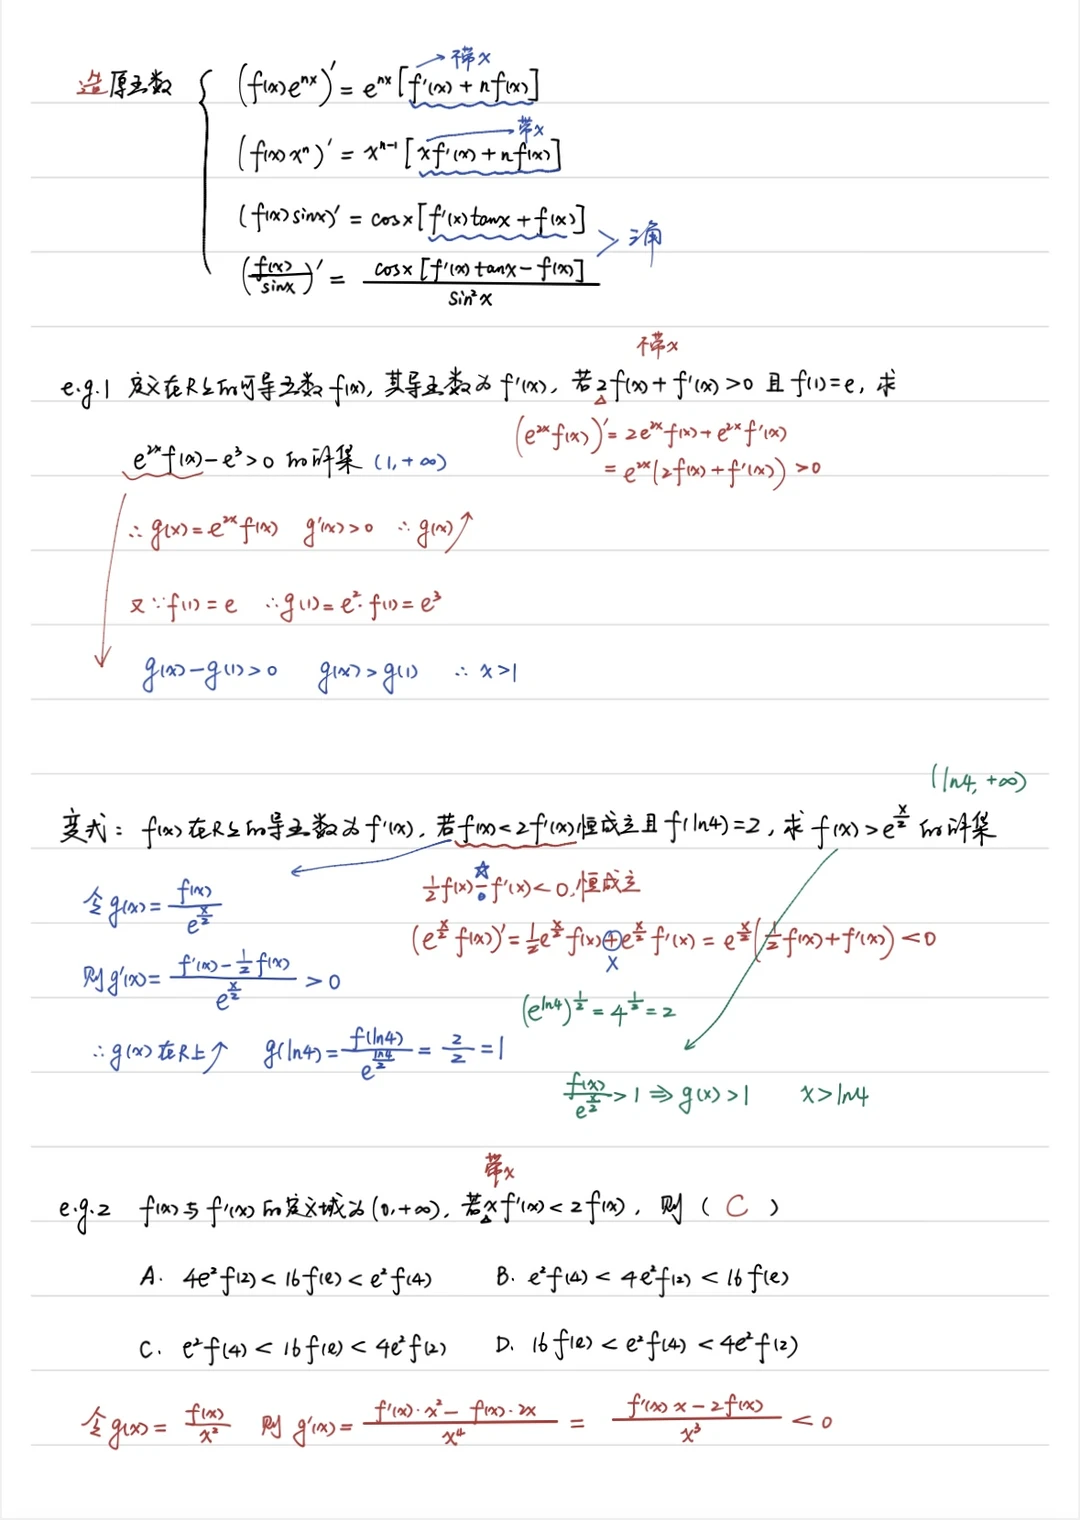 造原函数
不带x
(f(x)eⁿˣ)′ = eⁿˣ[f′(x) + nf(x)]
带x
(f(x)xⁿ)′ = xⁿ⁻¹[xf′(x) + nf(x)]
(f(x)sinx)′ = cosx[f′(x)tanx + f(x)]
> 三角
(f(x)/sinx)′ = cosx[f′(x)tanx − f(x)]/sin²x
不带x
e.g.1 定义在R上的可导函数f(x), 其导函数为f′(x), 若2f(x) + f′(x) > 0 且 f(1) = e, 求
e²ˣf(x) − e³ > 0 的解集 (1, +∞)
(e²ˣf(x))′ = 2e²ˣf(x) + e²ˣf′(x)
= e²ˣ(2f(x) + f′(x)) > 0
∴ g(x) = e²ˣf(x) g′(x) > 0 ∴ g(x)↗
又∵ f(1) = e ∴ g(1) = e²·f(1) = e³
g(x) − g(1) > 0 g(x) > g(1) ∴ x > 1
(ln4, +∞)
变式: f(x)在R上的导函数为f′(x), 若f(x) < 2f′(x)恒成立且f(ln4) = 2, 求f(x) > e^(x/2) 的解集
令g(x) = f(x)/e^(x/2)
☆
1/2 f(x) − f′(x) < 0, 恒成立
(e^(x/2) f(x))′ = 1/2 e^(x/2) f(x) ⊕ e^(x/2) f′(x) = e^(x/2)(1/2 f(x) + f′(x)) < 0
X
则g′(x) = (f′(x) − 1/2 f(x))/e^(x/2) > 0
(e^(ln4))^(1/2) = 4^(1/2) = 2
∴ g(x)在R上↗ g(ln4) = f(ln4)/e^(ln4/2) = 2/2 = 1
f(x)/e^(x/2) > 1 ⇒ g(x) > 1 x > ln4
带x
e.g.2 f(x)与f′(x)的定义域为(0, +∞), 若xf′(x) < 2f(x), 则 ( C )
A. 4e²f(2) < 16f(e) < e²f(4) B. e²f(4) < 4e²f(2) < 16f(e)
C. e²f(4) < 16f(e) < 4e²f(2) D. 16f(e) < e²f(4) < 4e²f(2)
令g(x) = f(x)/x² 则g′(x) = (f′(x)·x² − f(x)·2x)/x⁴ = (f′(x)x − 2f(x))/x³ < 0